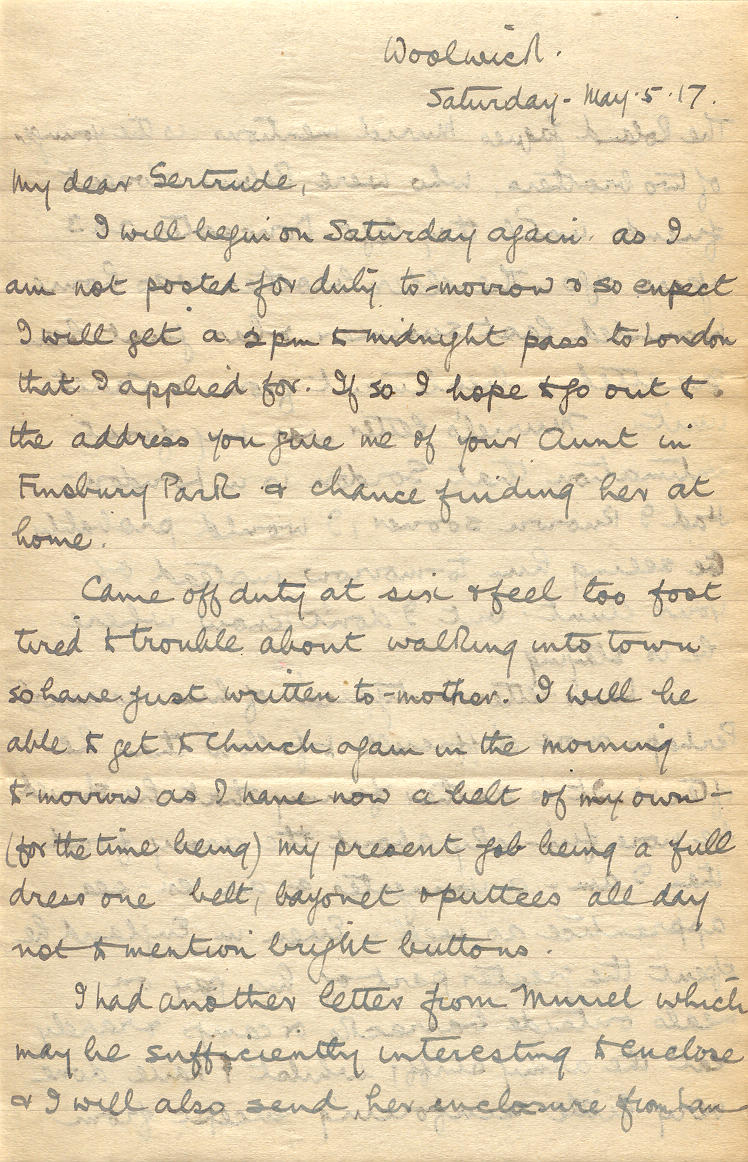 Woolwich.
Saturday - May. 5. 17.
My dear Gertrude,
I will begin on Saturday again. as I
am not posted for duty to-morrow & so expect
I will get a 2pm to midnight pass to London
that I applied for. If so I hope to go out to
the address you give me of your Aunt in
Finsbury Park & chance finding her at
home.
Came off duty at six & feel too foot
tired to trouble about walking into town
so have just written to-mother. I will be
able to get to Church again in the morning
to-morrow as I have now a belt of my own -
(for the time being) my present job being a full
dress one belt, bayonet & puttees all day
not to mention bright buttons.
I had another letter from Muriel which
may be sufficiently interesting to enclose
& I will also send her enclosure from Ian